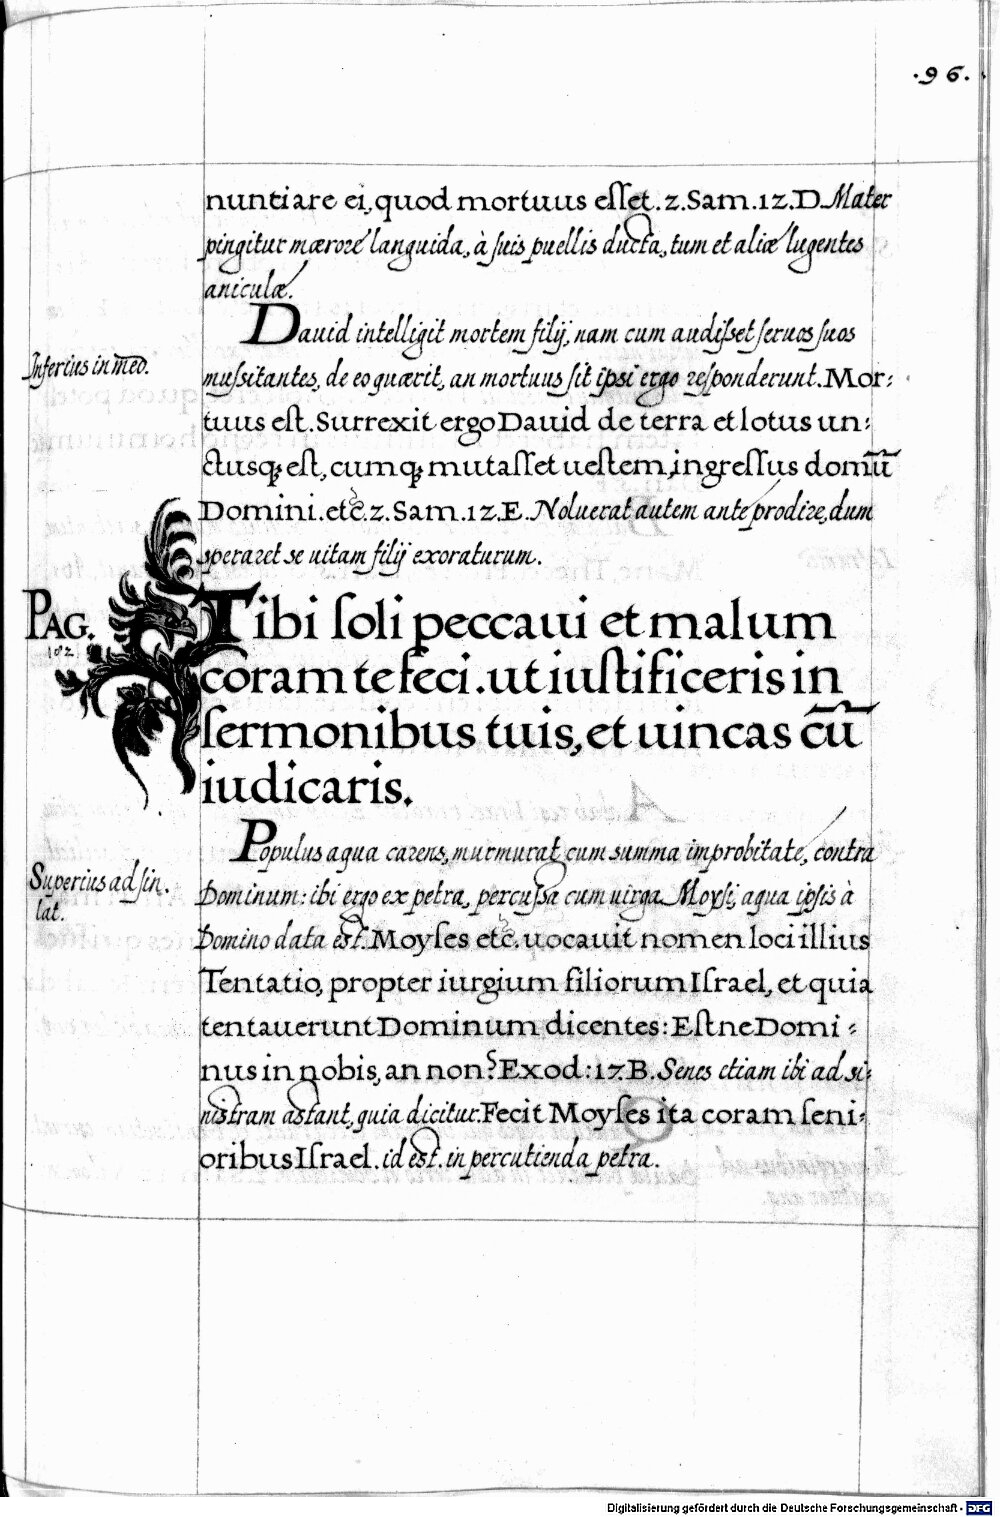 .96.
nuntiare ei, quod mortuus eſſet. 2. Sam. 12. D. Mater
pingitur mærore languida, à ſuis puellis ducta, tum et aliæ lugentes
aniculæ.
Dauid intelligit mortem filij, nam cum audiſſet ſeruos ſuos
Inferius in med.
muſsitantes, de eo quærit, an mortuus ſit ipsi ergo reſponderunt. Mor:
tuus eſt. Surrexit ergo Dauid de terra et lotus un:
ctusqꝫ eſt, cumqꝫ mutaſſet ueſtem, ingreſſus domū
Domini. etc. 2. Sam. 12. E. Noluerat autem ante prodire, dum
speraret se uitam filij exoraturum.
PAG.
102
Tibi ſoli peccaui et malum
coram te feci. ut iuſtificeris in
ſermonibus tuis, et uincas cū
iudicaris.
Populus aqua carens, murmurat cum summa improbitate, contra
Superius ad ſin.
lat.
Dominum: ibi ergo ex petra, percuſſa cum uirga Moyſi, aqua ipſis à
Domino data eſt. Moyſes etc. uocauit nomen loci illius
Tentatio, propter iurgium filiorum Iſrael, et quia
tentauerunt Dominum dicentes: Eſtne Domi:
nus in nobis, an non? Exod: 17. B. Senes etiam ibi ad si:
niſtram aſtant, quia dicitur. Fecit Moyſes ita coram ſeni:
oribus Iſrael. id eſt. in percutienda petra.
Digitalisierung gefördert durch die Deutsche Forschungsgemeinschaft - DFG